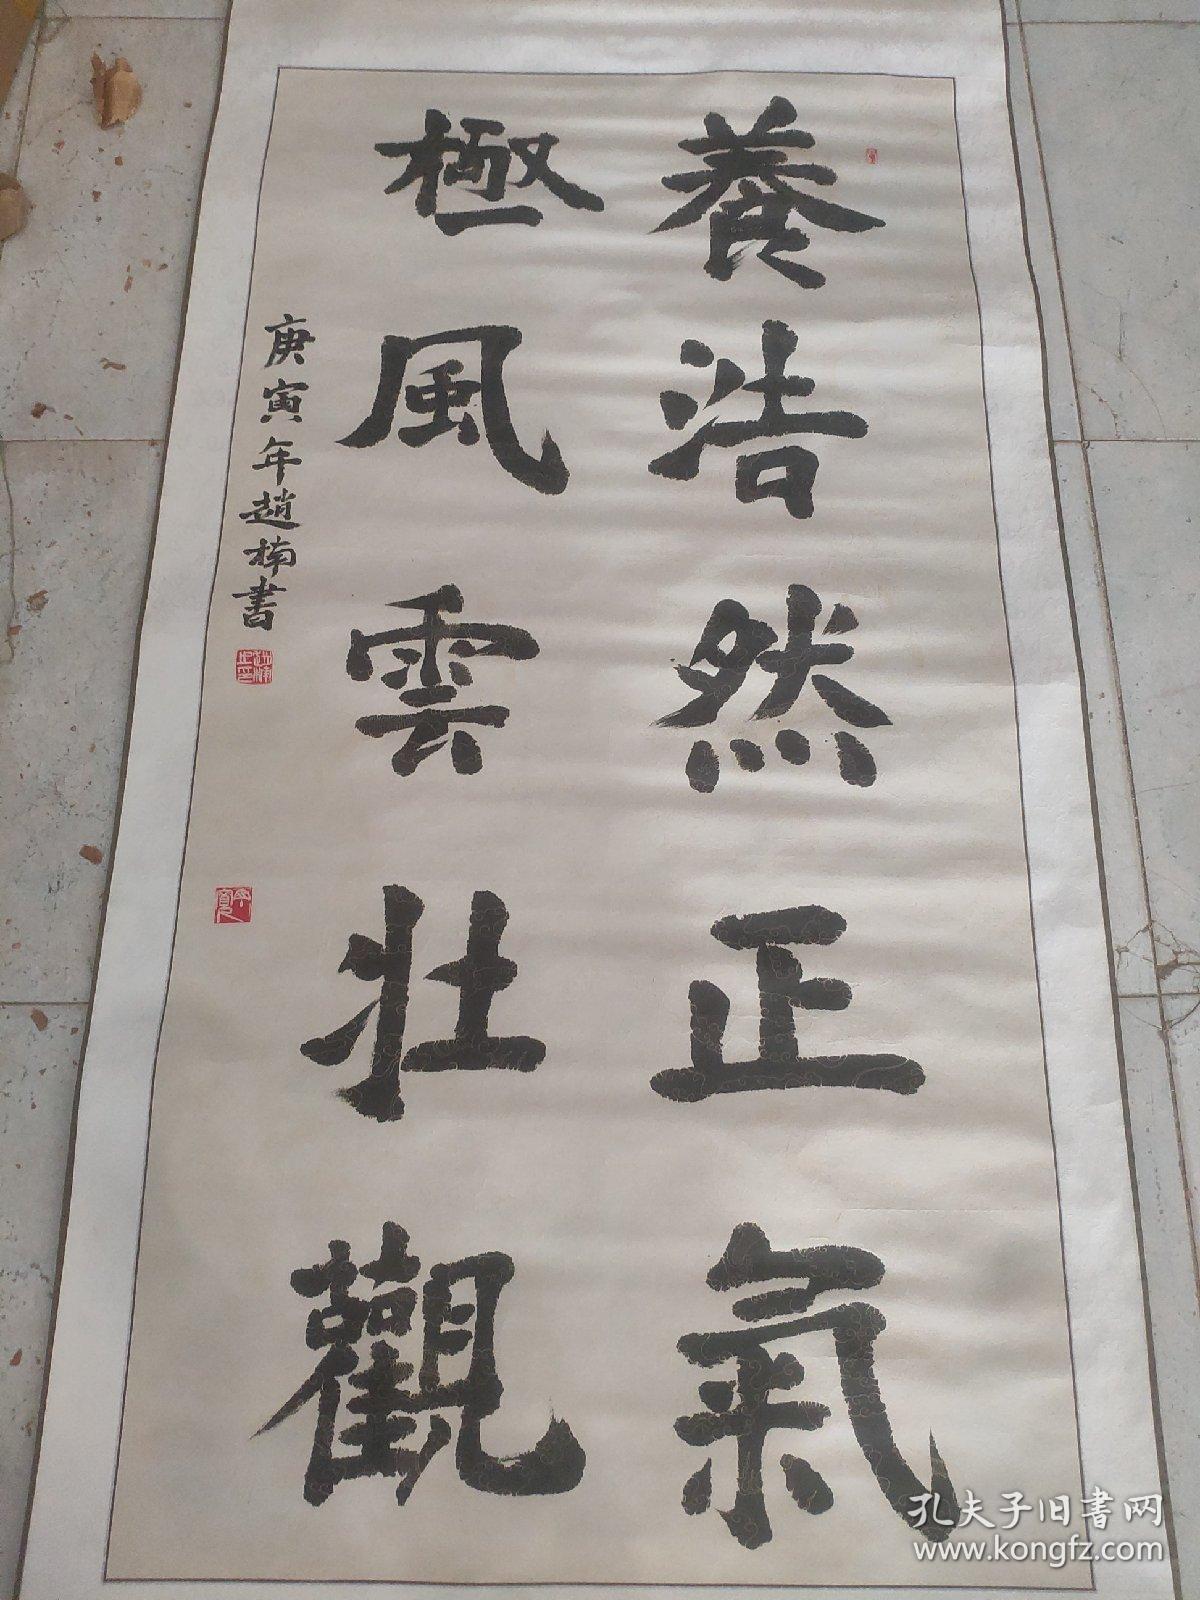 養浩然正氣
極風雲壯觀
庚寅年趙楠書
孔夫子旧書网
www.kongfz.com